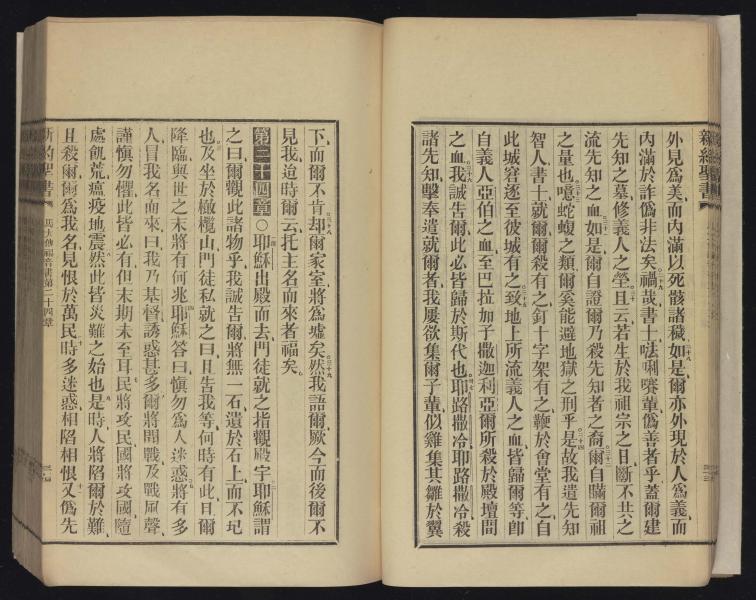 新約聖書
外見爲美而內滿以死骸諸穢如是爾亦外現於人爲義而
內滿於詐僞非法矣禍哉書士𠵽唎㘔輩爲善者乎蓋爾建
先知之墓修義人之塋且云若生於我祖宗之日斷不共之
流先知之血如是爾自證爾乃殺先知者之裔爾自滿爾祖
之量也噫蛇蝮之類爾奚能避地獄之刑乎是故我遣先知
智人書士就爾爾殺有之釘十字架有之鞭於會堂有之自
此城窘逐至彼城有之致地上所流義人之血皆歸爾等卽
自義人亞伯之血至巴拉加子撒迦利亞爾所殺於殿壇間
之血我誠告爾此必皆歸於斯代也耶路撒冷耶路撒冷殺
諸先知擊奉遣就爾者我屢欲集爾子輩似雞集其雛於翼
下而爾不肯却爾家室將爲墟矣然我語爾厥今而後爾不
見我迨時爾云托主名而來者福矣
第二十四章〇耶穌出殿而去門徒就之指觀殿宇耶穌謂
之曰爾觀此諸物乎我誠告爾將無一石遺於石上而不圮
也及坐於橄欖山門徒私就之曰且告我等何時有此且爾
降臨與世之末將有何兆耶穌答曰愼勿爲人迷惑將有多
人冒我名而來曰我乃基督誘惑甚多爾將聞戰及戰風聲
謹愼勿懼此皆必有但末期未至耳民將攻民國將攻國隨
處飢荒瘟疫地震然此皆災難之始也是時人將陷爾於難
且殺爾爾爲我名見恨於萬民時多迷惑相陷相恨又僞先
新約聖書
馬太傳福音書第二十四章